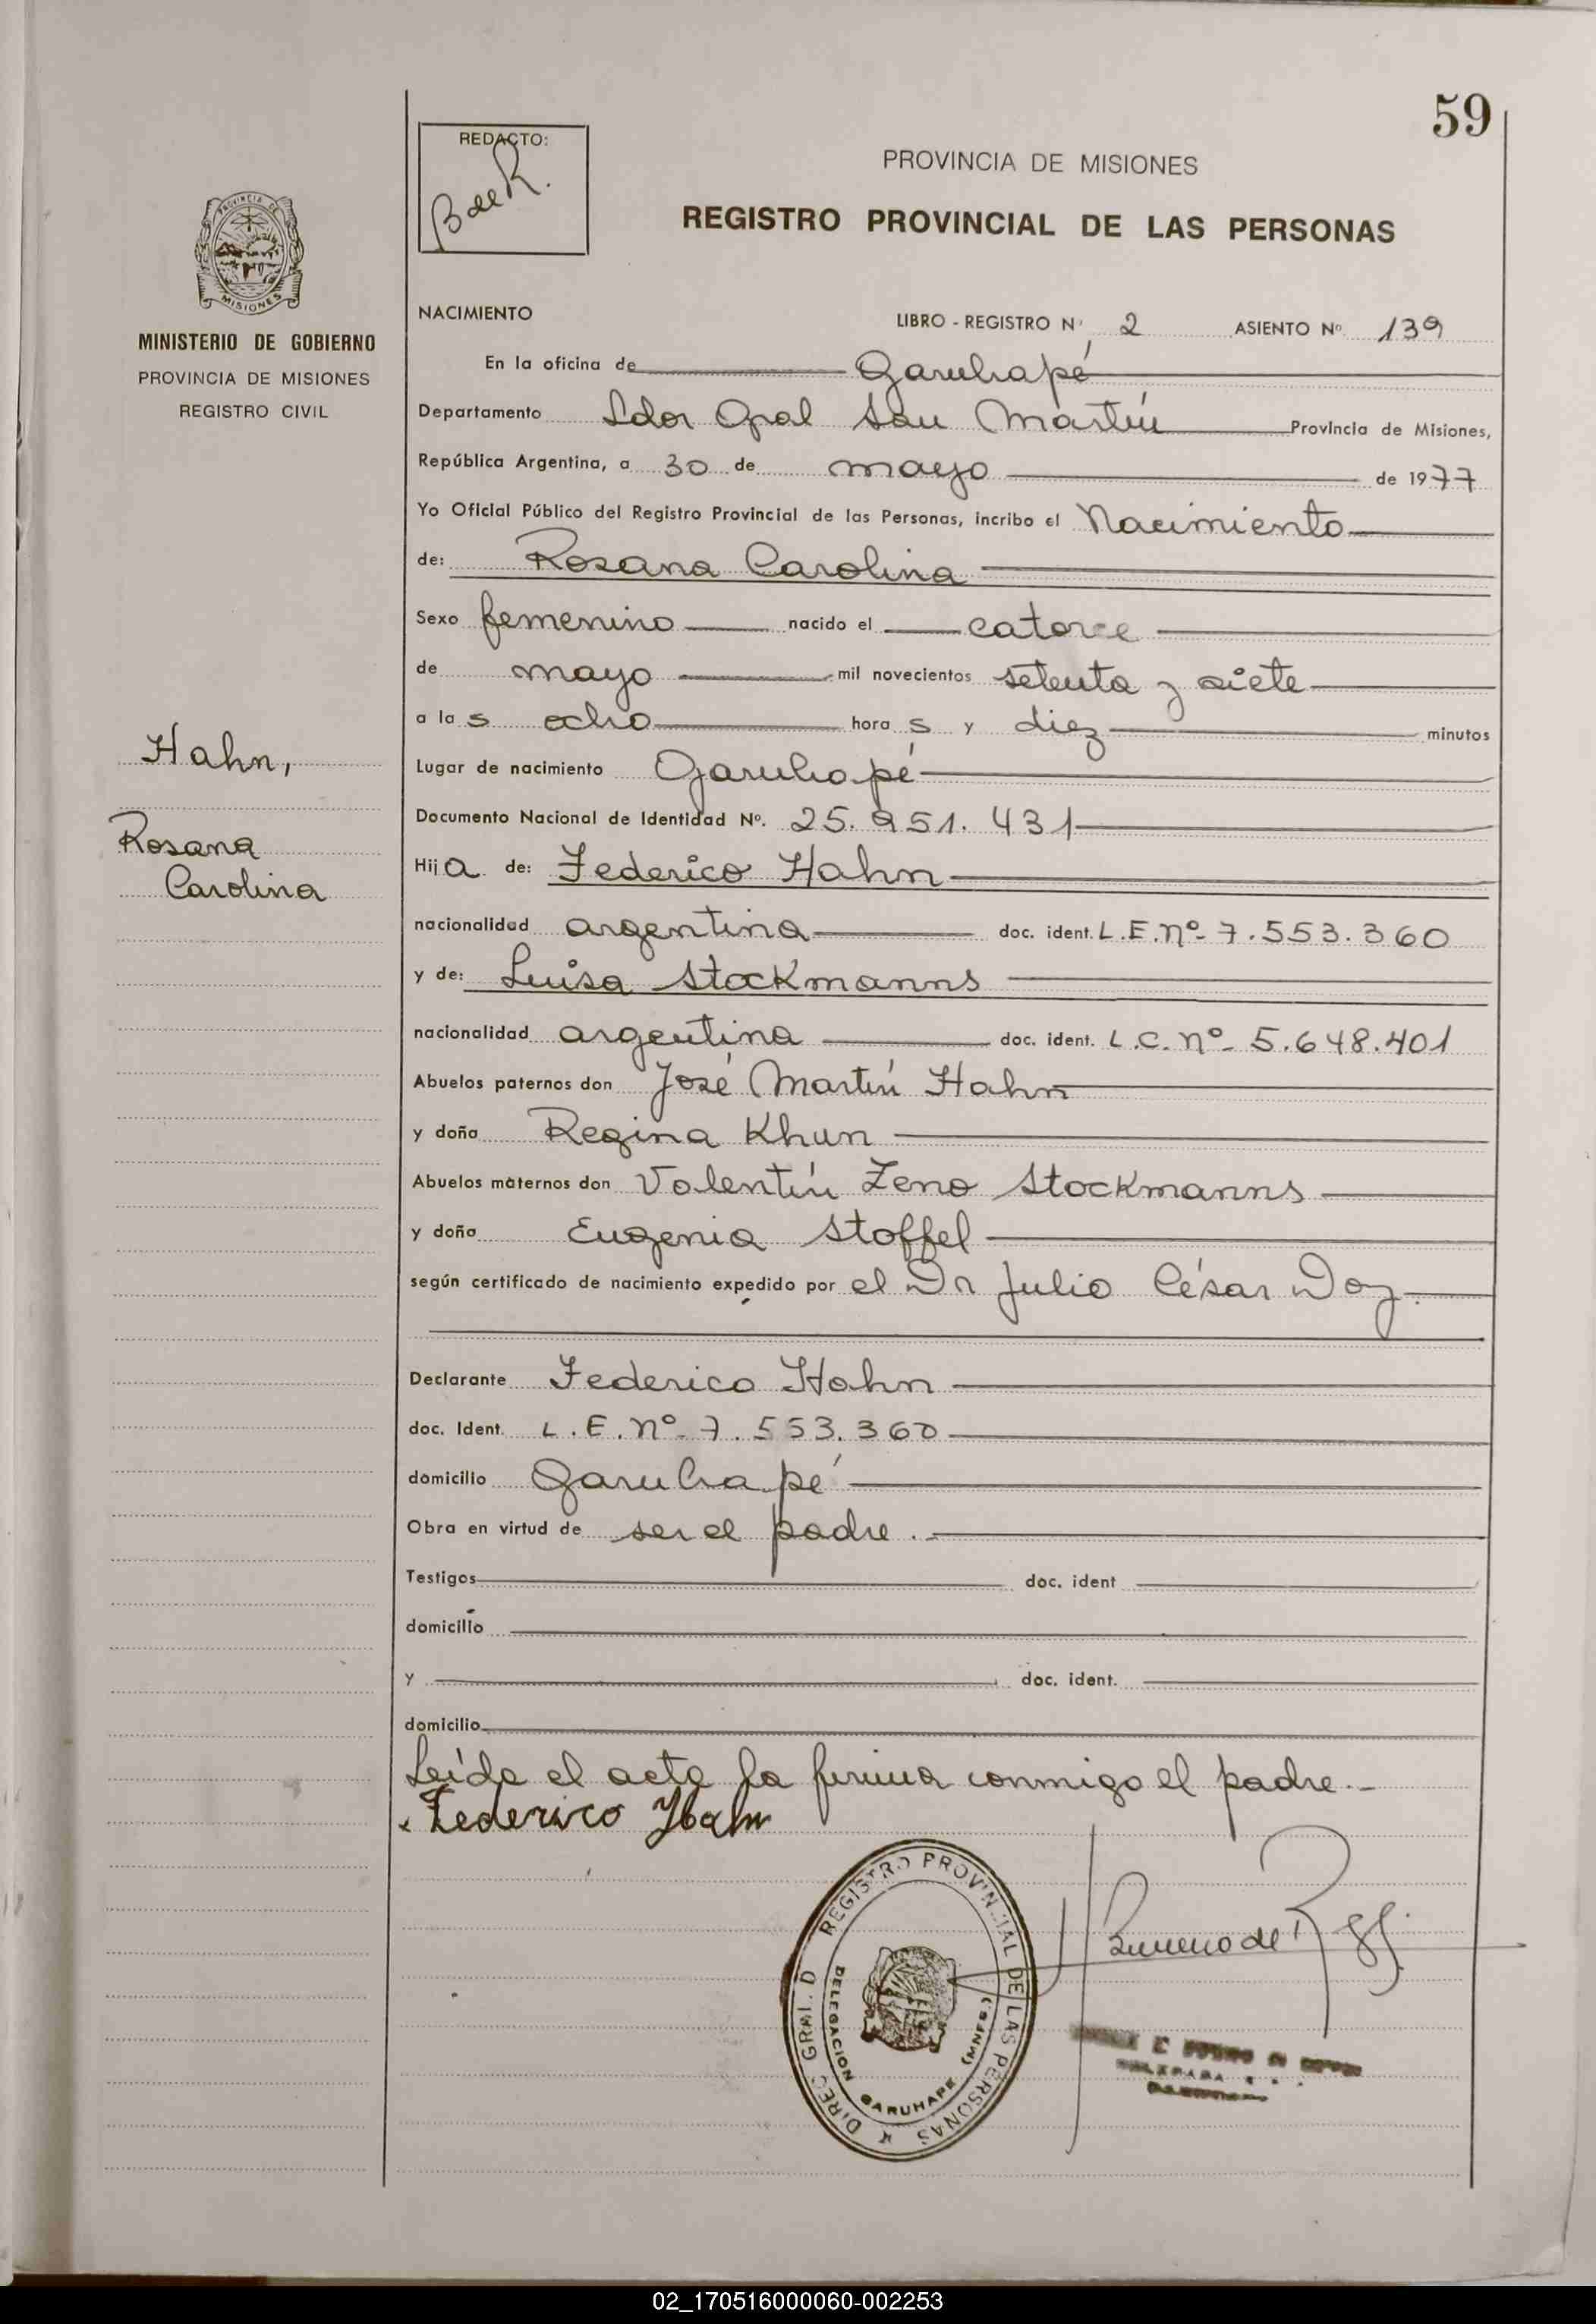 59
REDACTO:
PROVINCIA DE MISIONES
REGISTRO PROVINCIAL DE LAS PERSONAS
MISIONES
MINISTERIO DE GOBIERNO
PROVINCIA DE MISIONES
REGISTRO CIVIL
NACIMIENTO LIBRO - REGISTRO Nº 2 ASIENTO Nº 139
En la oficina de Garuhapé
Departamento Ldor Gral San Martín Provincia de Misiones,
República Argentina, a 30 de mayo de 1977
Yo Oficial Público del Registro Provincial de las Personas, incribo el Nacimiento
de: Rosana Carolina
Sexo femenino nacido el catorce
de mayo mil novecientos setenta y siete
a las ocho horas y diez minutos
Hahn,
Rosana
Carolina
Lugar de nacimiento Garuhapé
Documento Nacional de Identidad Nº. 25.951.431
Hija de: Federico Hahn
nacionalidad argentina doc. ident. L.E.Nº- 7.553.360
y de: Luisa Stockmanns
nacionalidad argentina doc. ident. L.C.Nº- 5.648.401
Abuelos paternos don José Martín Hahn
y doña Regina Khun
Abuelos maternos don Valentín Zeno Stockmanns
y doña Eugenia Stoffel
según certificado de nacimiento expedido por el Dr Julio César Doz.
Declarante Federico Hahn
doc. Ident. L.E.Nº- 7.553.360
domicilio Garuhapé
Obra en virtud de ser el padre.
Testigos doc. ident
domicilio
y doc. ident.
domicilio
Leída el acta la firma conmigo el padre.-
Federico Hahn
DIREC GRAL. D REGISTRO PROVINCIAL DE LAS PERSONAS
DELEGACION GARUHAPE (MNES.)
02_170516000060-002253